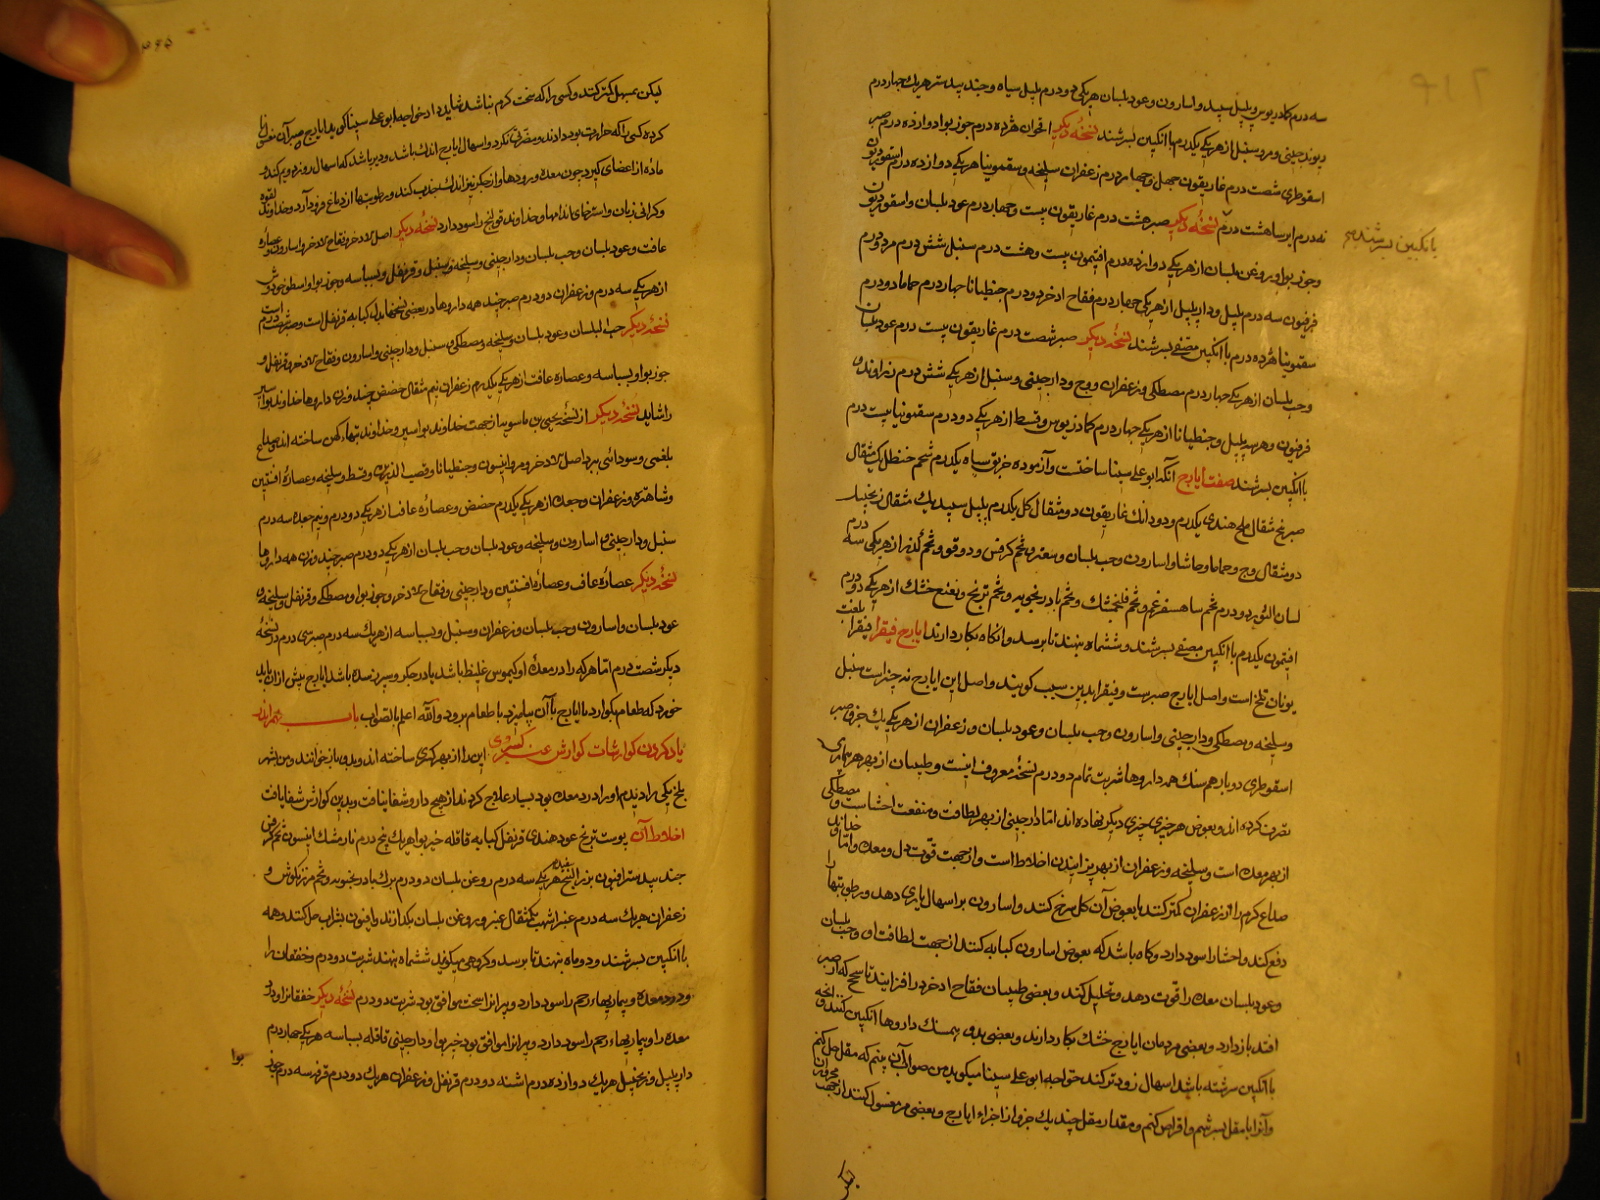 سه درم کمادریوس و پلپل سپید و اسارون و عود بلسان هریکی دو درم پلپل سیاه و جند بیدستر هریک چهار درم
ریوند چینی و مر و سنبل از هریکی یکدرم با انگبین بسرشند نسخهٔ دیگر افحوان هژده درم جوز بوا دوازده درم صبر
اسقوطری شصت درم غاریقون چهل و چهار درم زعفران سلیخه و سقمونیا هریکی دوازده درم اسقوردیون
نه درم ایرسا هشت درم نسخهٔ دیگر صبر هشت درم غاریقون بیست و چهار درم عود بلسان و اسقوردیون
با انگبین بسرشند
وجوز بوا و روغن بلسان از هریکی دوازده درم افتیمون بیست و هشت درم سنبل شش درم مر دو درم
فرفیون سه درم پلپل و دارپلپل از هریکی چهار درم فقاح اذخر دو درم جنطیانا چهار درم حماما دو درم
سقمونیا هژده درم با انگبین مصفی بسرشند نسخهٔ دیگر صبر شصت درم غاریقون بیست درم عود بلسان
و حب بلسان از هریکی چهار درم مصطکی و زعفران و وج و دارچینی و سنبل از هریکی شش درم زراوند و
فرفیون و هر سه پلپل و جنطیانا از هریکی چهار درم کمادریوس و قسط از هریکی دو درم سقمونیا بیست درم
با انگبین بسرشند صفت ایارج آنکه ابو علی سینا ساختست و آزموده خربق سیاه یکدرم شحم حنظل یک مثقال
صبر پنج مثقال ملح هندی یکدرم و دو دانک غاریقون دو مثقال کل یکدرم پلپل سپید یک مثقال زنجبیل
دو مثقال وج و حماما و حاشا و اسارون و حب بلسان و سعتر و تخم کرفس و دوقو و تخم گندنا از هریکی سه درم
لسان الثور دو درم تخم ساهسفرغم و تخم فلنجمشک و تخم بادرنجبویه و تخم ترنج و نعنع خشک از هریکی دو درم
افتیمون یکدرم با انگبین مصفی بسرشند و ششماه بنهند تا برسد و انگاه بکار دارند ایارج فیقرا فیقرا بلغت
یونان تلخ است و اصل ایارج صبرست و فیقرا بدین سبب کویند و اصل این ایارج نه چیزاست سنبل
و سلیخه و مصطکی و دارچینی و اسارون و حب بلسان و عود بلسان و زعفران از هریکی یک جزو صبر
اسقوطری دو بار هم سنک همه داروها شربت تمام دو درم نسخهٔ معروف اینست و طبیبان از بهر هر بیماری
تصرف کرده اند و بعوض هر چیزی چیزی دیگر نهاده اند اما دارچینی از بهر لطافت و منفعت احشاست و مصطکی
از بهر معده است و سلیخه و زعفران از بهر پزانیدن اخلاط است و از جهت قوت دل و معده و اما خداوند
صداع کرم را از زعفران کمتر کنند یا بعوض آن کل سرخ کنند و اسارون بر اسهال یاری دهد و رطوبتها را
دفع کند و احشا را سود دارد و گاه باشد که بعوض اسارون کبابه کنند از جهت لطافت او و حب بلسان
و عود بلسان معده را قوت دهد و تحلیل کند و بعضی طبیبان فقاح اذخر درافزایند تا سحج که از صبر
افتد باز دارد و بعضی مردمان ایارج خشک بکار دارند و بعضی بدو همسنک داروها انگبین کنند و انچه
با انگبین سرشته باشد اسهال زودتر کند خواجه ابو علی سینا میگوید من صواب آن بینم که مقل حل کنم
و آنرا با مقل بسرشم و اقراص کنم و مقدار مقل چند یک جزو از اجزاء ایارج و بعضی مر مغسول کنند از جهت محروران
لیکن
لیکن بمسهل کمتر کند و کسی را که سخت کرم نباشد نشاید داد خواجه ابو علی سینا گوید ایارج صبر آن نفع
کرده کسی را که حرارت بود دادند و مضرتی نکرد و اسهال ایارج اندک باشد و دیر باشد که اسهال روز دویم کند و
ماده از اعضای گیرد چون معده و رودها و از جگر نیز اندک جذب کند و رطوبتها از دماغ فرود آرد و خداوند لقوه
و گرانی زبان و استرخای اندامها و خداوند قولنج را سود دارد نسخهٔ دیگر اصل الاذخر و فقاح الاذخر و اسارون و عصاره
غافت و عود بلسان و حب بلسان و دارچینی و سلیخه و سنبل و قرنفل و بسباسه و جوز بوا و اسطوخودوس
از هریکی سه درم و زعفران دو درم صبر چند همه داروها در بعضی نسخها بدل کبابه قرنفل است و صبر شصت درم است
نسخهٔ دیگر حب البلسان و عود بلسان و سلیخه و مصطکی و سنبل و دارچینی و اسارون و فقاح الاذخر و قرنفل و
جوز بوا و بسباسه و عصاره غافت از هریکی یکدرم زعفران نیم مثقال حضض چند وزن داروها خداوند بواسیر
را شاید نسخهٔ دیگر از نسخه یحیی بن ماسویه از جهت خداوند بواسیر و خداوند تبهاء کهن ساخته اند و صداع
بلغمی و سودائی ببرد اصل الاذخر و مر و انیسون و جنطیانا و قصب الذریره و قسط و سلیخه و عصارهٔ افسنتین
و شاهتره و زعفران و جعده از هریکی یکدرم حضض و عصارهٔ غافت از هریکی دو درم و نیم جعده سه درم
سنبل و دارچینی و اسارون و سلیخه و عود بلسان و حب بلسان از هریکی دو درم صبر چند وزن همه داروها
نسخهٔ دیگر عصارهٔ غافت و عصارهٔ افسنتین و دارچینی و فقاح الاذخر و جوز بوا و مصطکی و قرنفل و سلیخه و
عود بلسان و اسارون و حب بلسان و زعفران و سنبل و بسباسه از هریک سه درم صبر سی درم در نسخهٔ
دیگر شصت درم اما هر که را در معده او کیموس غلیظ باشد یا در جگر و سپرز سده باشد ایارج پیش از ان باید
خورد که طعام بگوارد یا ایارج با آن بیامیزد با طعام برود والله اعلم بالصواب باب
یاد کردن کوارشات کوارش عنبر کسروی این را از بهر کسری ساخته اند و بدو باز خوانند و من اشهر
بلخ یکی را دیدم او را درد معده بود بسیار علاج کردند از هیچ دارو شفا نیافت و بدین کوارش شفا یافت
اخلاط آن پوست ترنج عود هندی قرنفل کبابه قاقله خیربوا هریک پنج درم نارمشک انیسون تخم کرفس
جند بیدستر افیون بزر البنج سفید هریکی سه درم روغن بلسان دو درم برک بادرنجبویه و تخم مرزنکوش و
زعفران هریک سه درم عنبر اشهب یکمثقال عنبر و روغن بلسان بگدازند و افیون بشراب حل کنند و همه
با انگبین بسرشند و دو ماه بنهند تا برسد و گروهی میگویند ششماه بنهند شربت دو درم و خفقان را
و درد معده و بیماریهاء رحم را سود دارد و پیرانرا سخت موافق بود شربت دو درم نسخهٔ دیگر خفقانرا و درد
معده را و بیماریهاء رحم را سود دارد و پیرانرا موافق بود خیربوا و دارچینی قاقله بسباسه هریکی چهار درم
دارپلپل و زنجبیل هریک دوازده درم اشنه دو درم قرنفل و زعفران هریک دو درم قرفه سه درم جوز
بوا